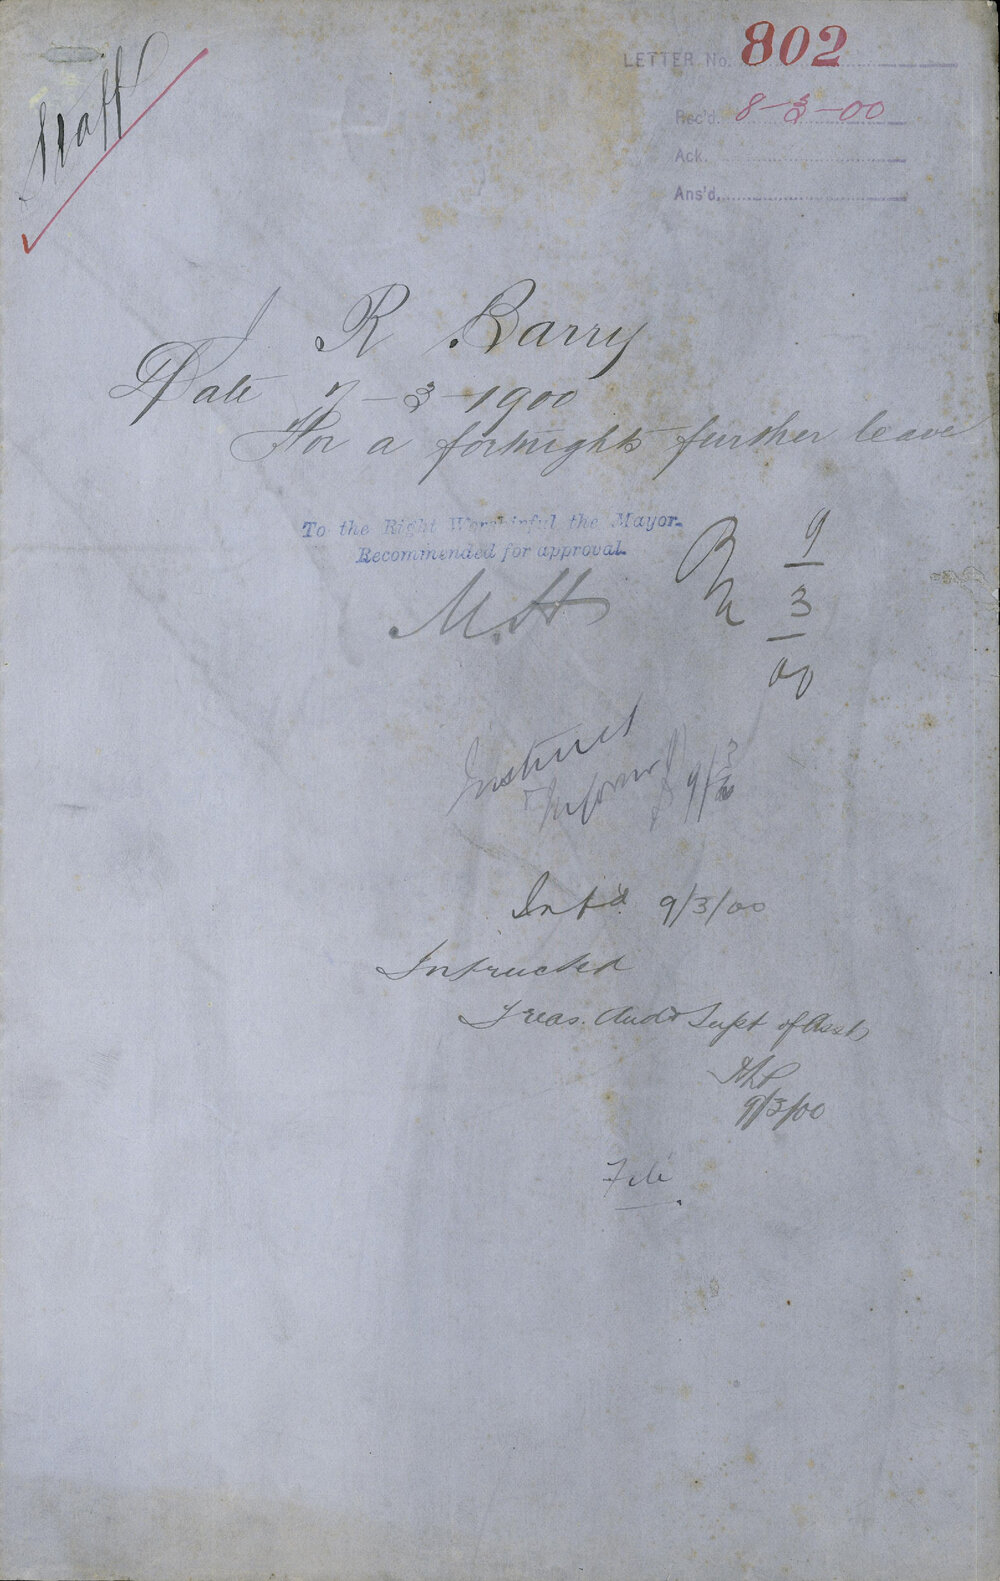 Staff
LETTER No. 802
Rec'd. 8-3-00
Ack.
Ans'd.
J R Barry
Date 7-3-1900
For a fortnights further leave
To the Right Worshipful the Mayor.
Recommended for approval.
M.H
9
3
00
Instruct
& Inform 9/3
Inf'd 9/3/00
Intructed
Treas. Aud & Supt of Assts
9/3/00
File